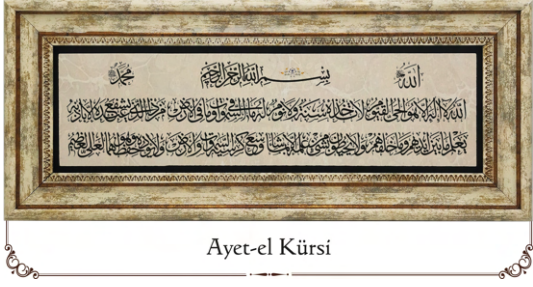 الله بسم الله الرحمن الرحيم محمد
الله لا اله الا هو الحي القيوم لا تأخذه سنة ولا نوم له ما في السموات وما في الارض من ذا الذي يشفع عنده الا باذنه
يعلم ما بين ايديهم وما خلفهم ولا يحيطون بشيء من علمه الا بما شاء وسع كرسيه السموات والارض ولا يؤده حفظهما وهو العلي العظيم
Ayet-el Kürsi